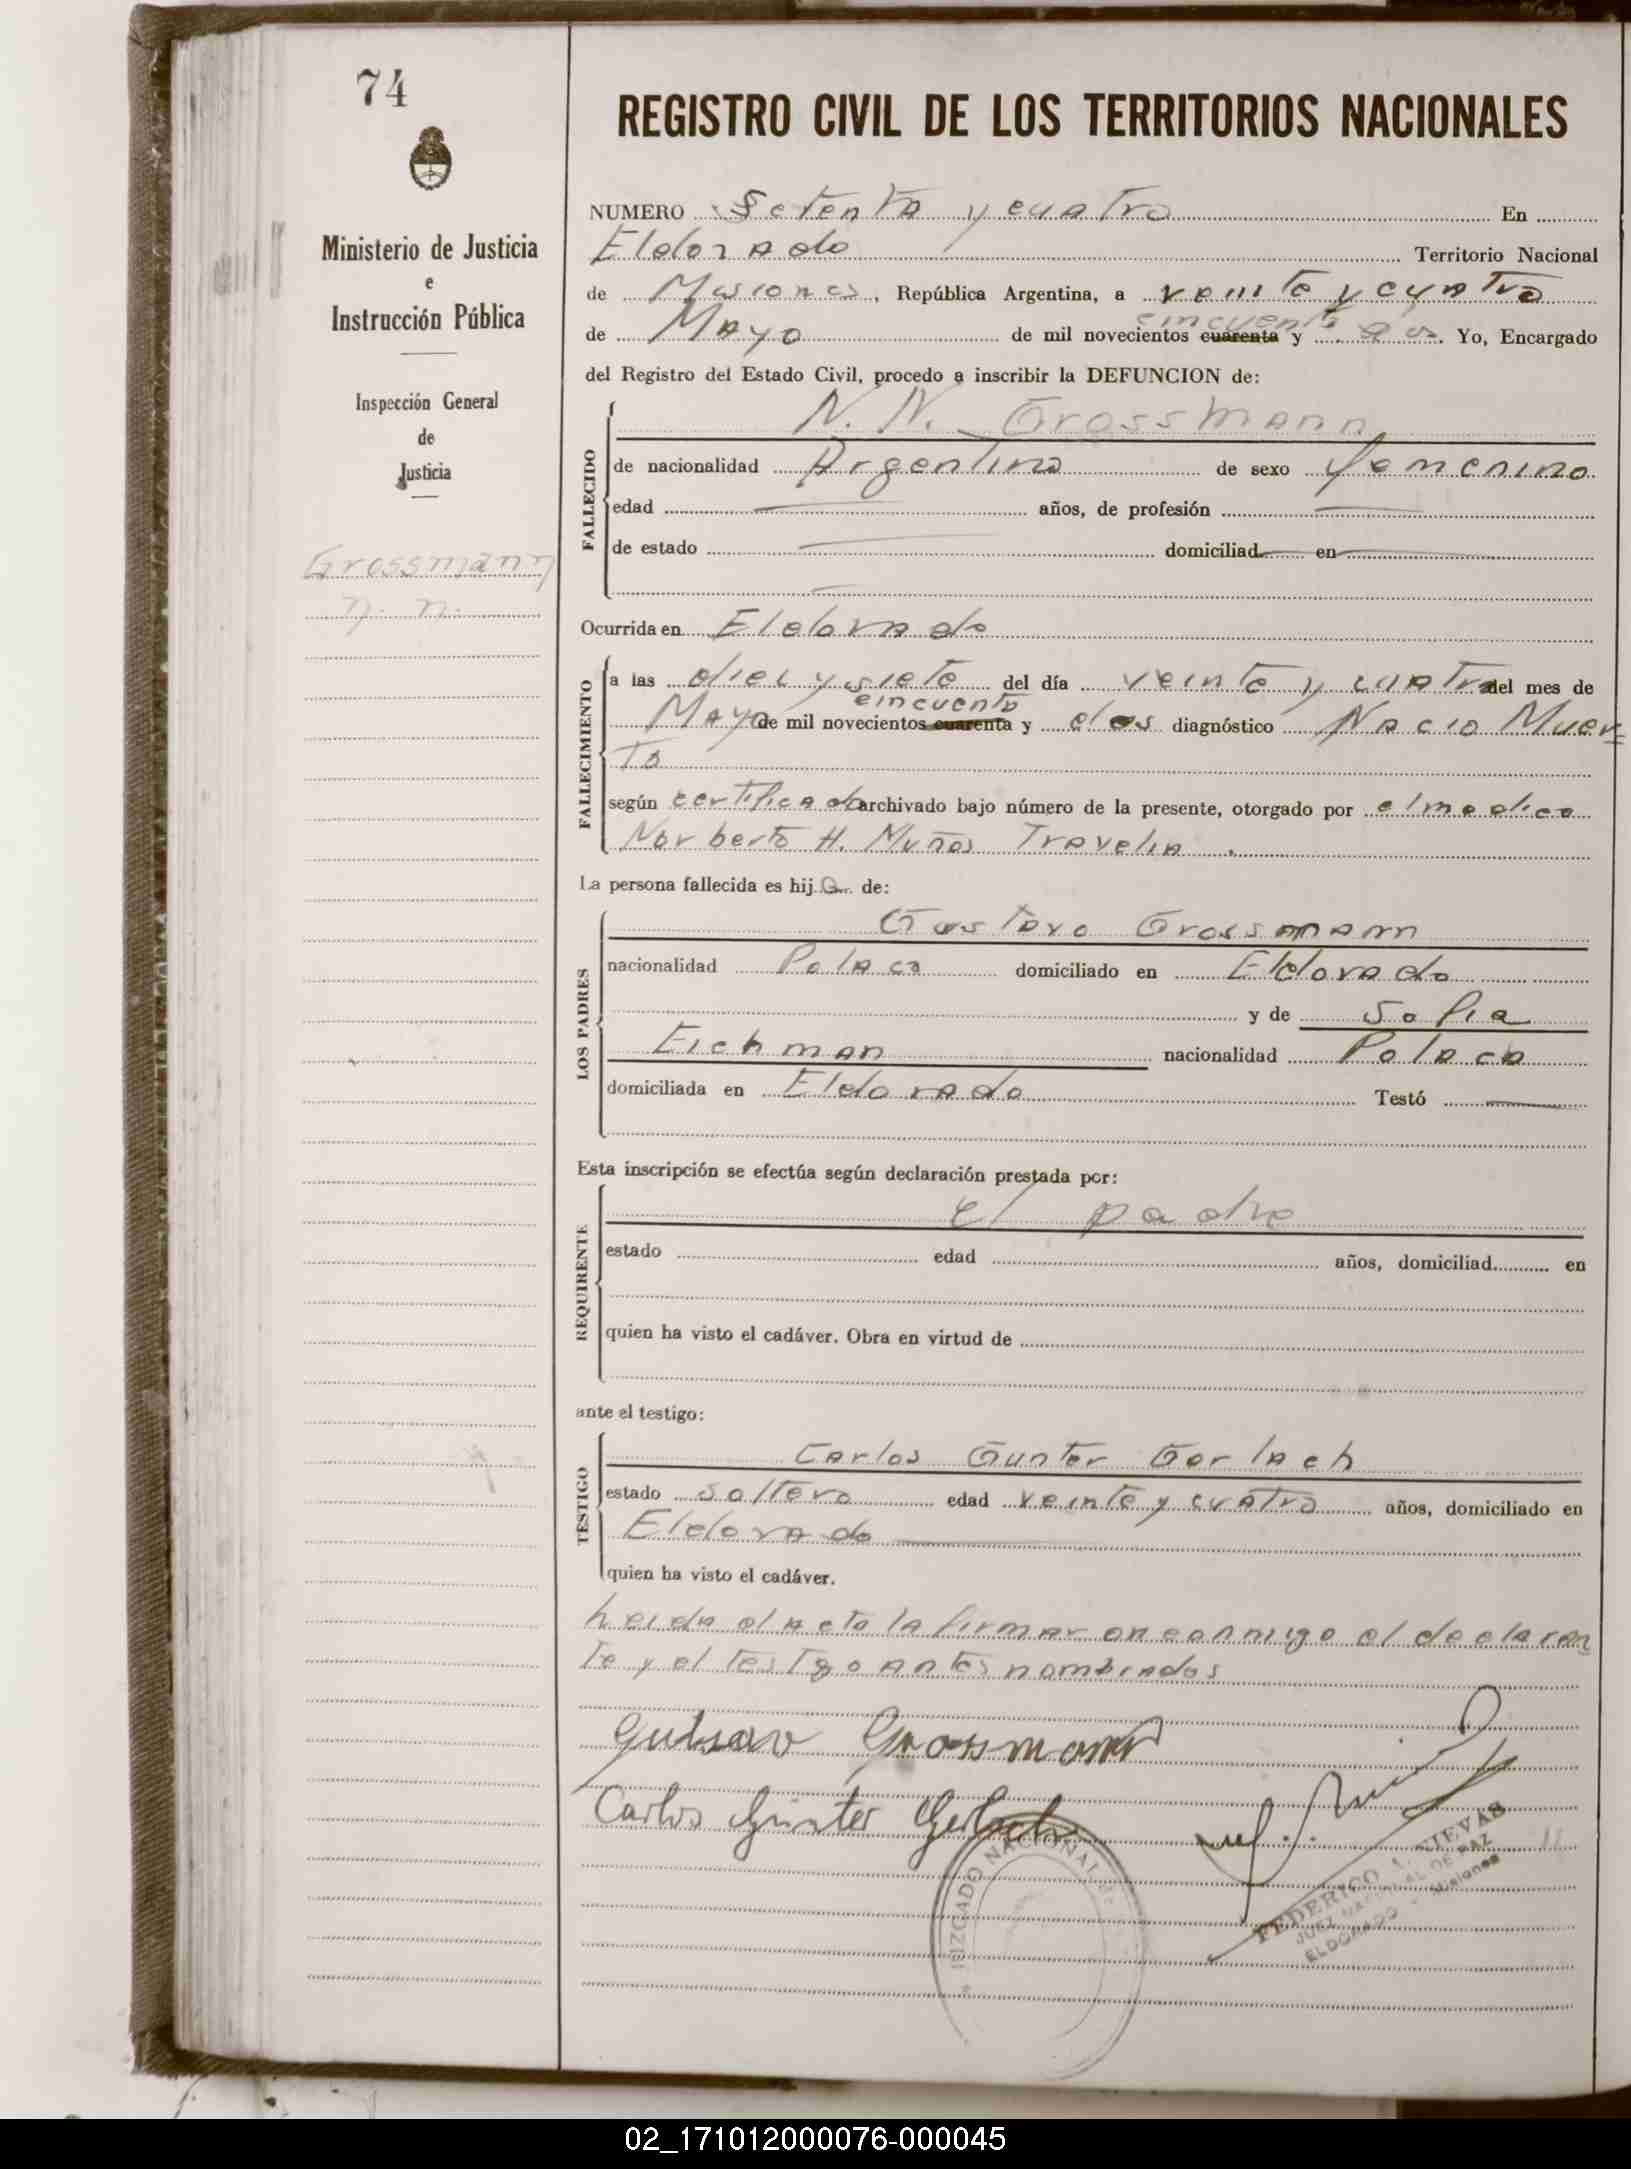 74
Ministerio de Justicia
e
Instrucción Pública
Inspección General
de
Justicia
Grossmann
n. n.
REGISTRO CIVIL DE LOS TERRITORIOS NACIONALES
NUMERO Setenta y cuatro En
Eldorado Territorio Nacional
de Misiones, República Argentina, a veinte y cuatro
cincuenta
de Mayo de mil novecientos cuarenta y dos. Yo, Encargado
del Registro del Estado Civil, procedo a inscribir la DEFUNCION de:
FALLECIDO
N. N. Grossmann
de nacionalidad Argentina de sexo femenino
edad años, de profesión
de estado domiciliad en
Ocurrida en Eldorado
FALLECIMIENTO
a las diez y siete del día veinte y cuatro del mes de
cincuenta
Mayo de mil novecientos cuarenta y dos diagnóstico Nacio Muer
to
según certificado archivado bajo número de la presente, otorgado por el medico
Norberto H. Muños Travelia.
La persona fallecida es hija de:
LOS PADRES
Gustavo Grossmann
nacionalidad Polaca domiciliado en Eldorado
y de Sofia
Eichman nacionalidad Polaca
domiciliada en Eldorado Testó
Esta inscripción se efectúa según declaración prestada por:
REQUIRENTE
el padre
estado edad años, domiciliad en
quien ha visto el cadáver. Obra en virtud de
ante el testigo:
TESTIGO
Carlos Gunter Gerlach
estado soltero edad veinte y cuatro años, domiciliado en
Eldorado
quien ha visto el cadáver.
Leida el acta la firmaron conmigo el declaran
te y el testigo antes nombrados
Gustav Grossmann
Carlos Günter Gerlach
JUZGADO NACIONAL DE
FEDERICO CUEVAS
JUEZ NACIONAL DE PAZ
ELDORADO - Misiones
02_171012000076-000045